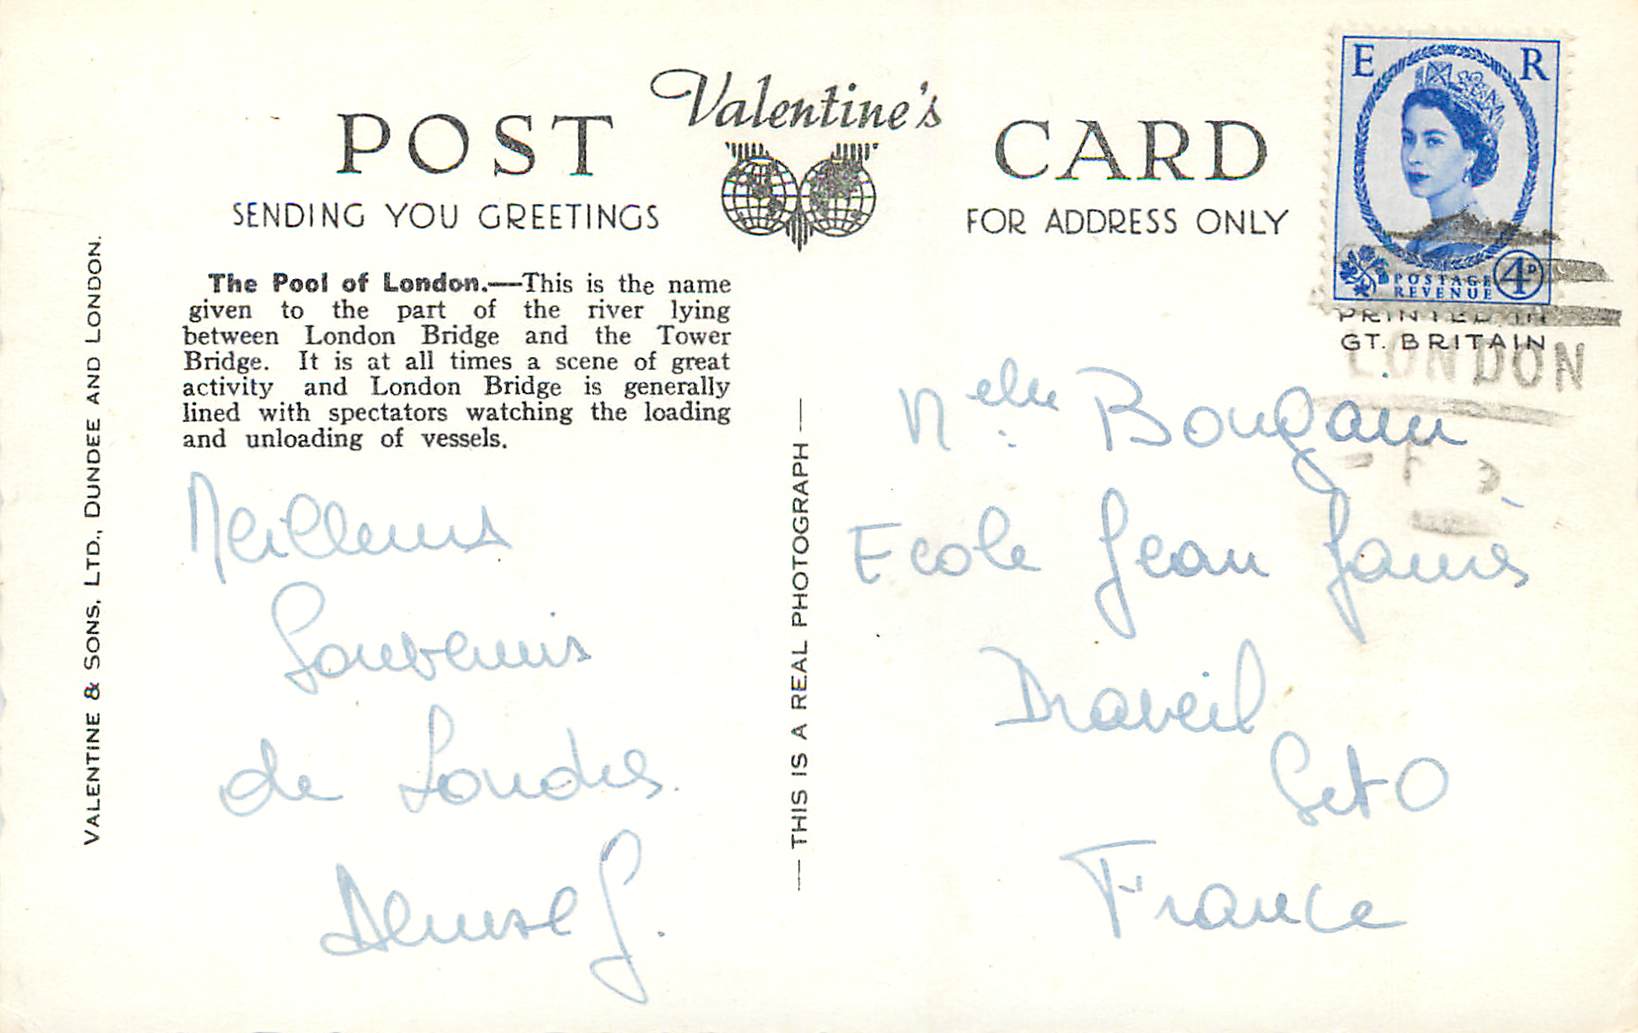 Valentine's
POST CARD
SENDING YOU GREETINGS
FOR ADDRESS ONLY
E R
POSTAGE
REVENUE
4D
PRINTED IN
GT. BRITAIN
LONDON
The Pool of London.—This is the name
given to the part of the river lying
between London Bridge and the Tower
Bridge. It is at all times a scene of great
activity and London Bridge is generally
lined with spectators watching the loading
and unloading of vessels.
Meilleurs
Souvenirs
de Londres.
Denise G.
VALENTINE & SONS, LTD., DUNDEE AND LONDON.
— THIS IS A REAL PHOTOGRAPH —
Melle Bougain
Ecole Jean Jaurès
Draveil
S et O
France